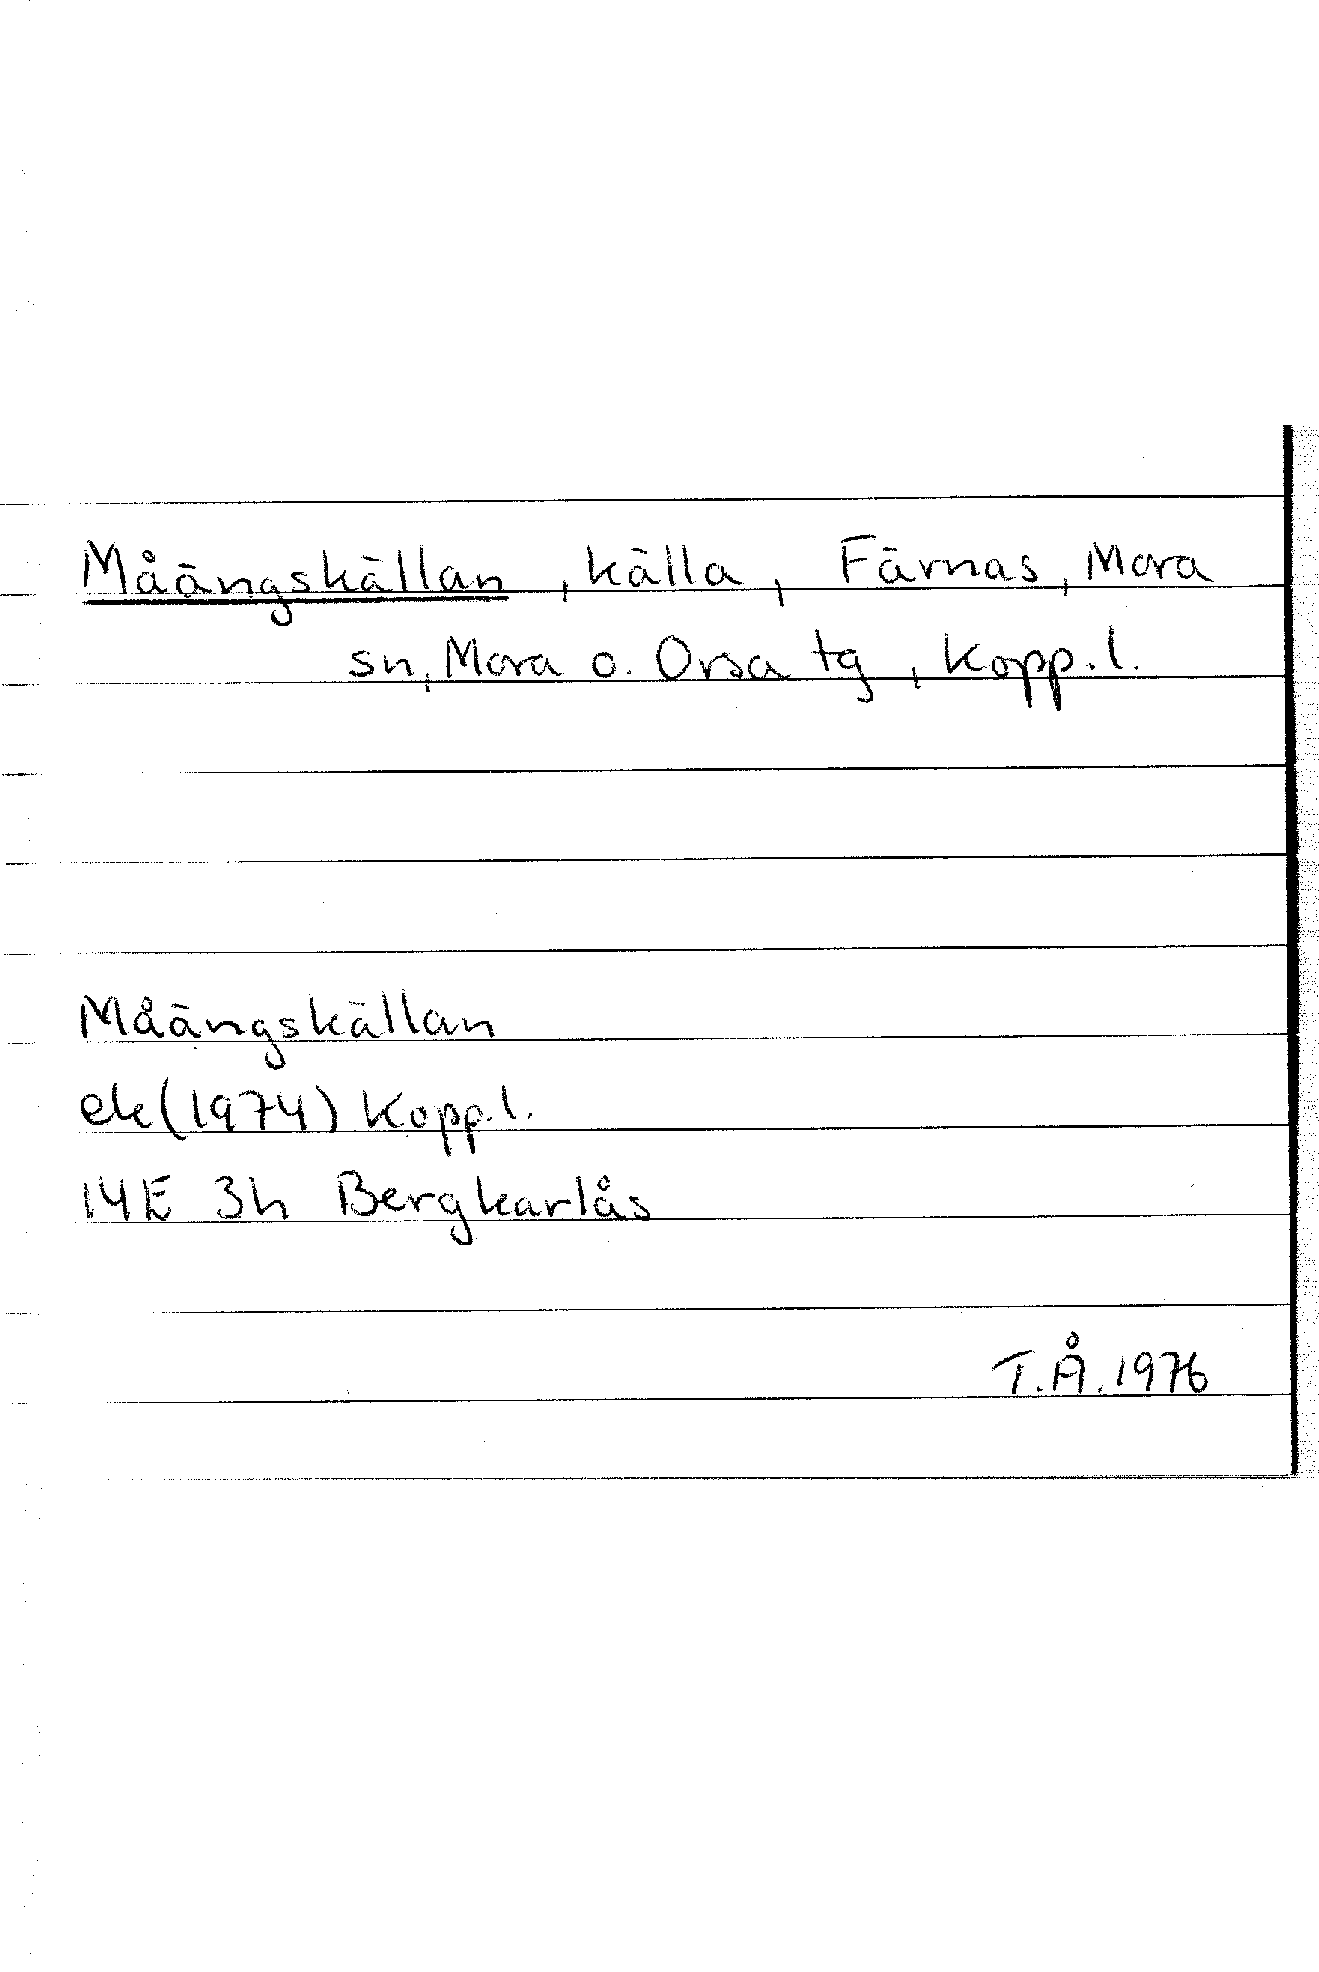 Måängskällan, källa, Färnas, Mora
sn, Mora o. Orsa tg, Kopp.l.
Måängskällan
ek(1974) Kopp.l.
14E 3h Bergkarlås
T.Å.1976